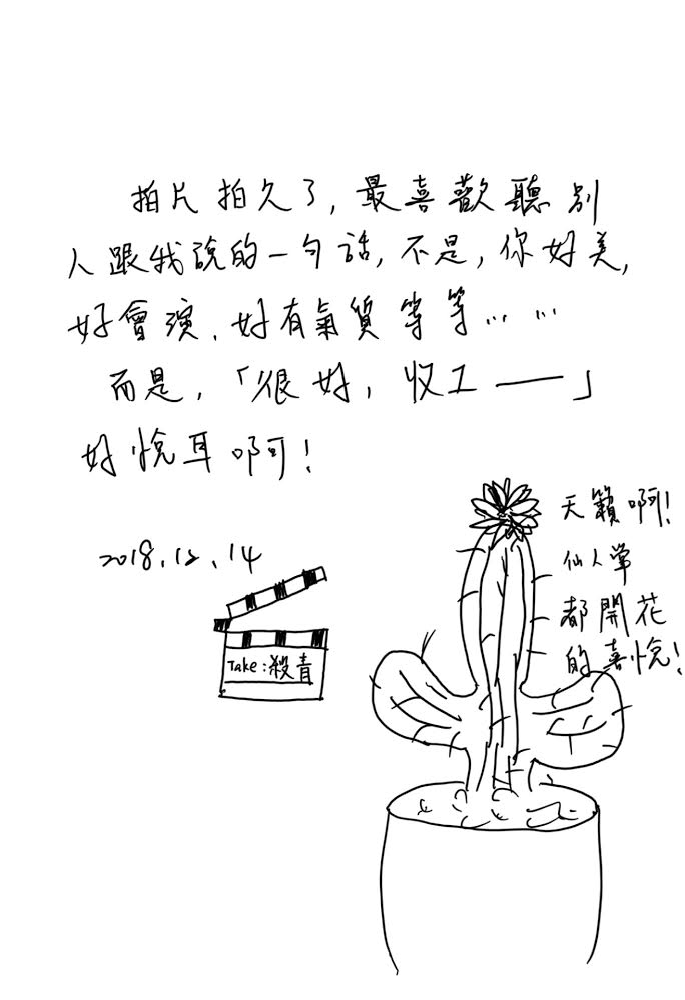 拍片拍久了,最喜歡聽別
人跟我說的一句話,不是,你好美,
好會演、好有氣質等等……
而是,「很好,收工——」
好悅耳啊!
2018.12.14
Take:殺青
天籟啊!
仙人掌
都開花
的喜悅!